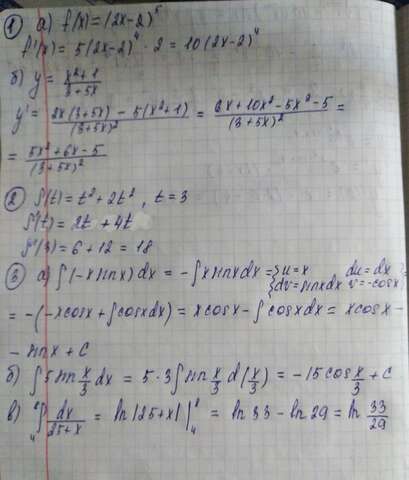 ① а) f(x) = (2x-2)⁵
f'(x) = 5(2x-2)⁴ · 2 = 10(2x-2)⁴
б) y = (x²+1)/(3+5x)
y' = (2x(3+5x) - 5(x²+1))/(3+5x)² = (6x+10x²-5x²-5)/(3+5x)² =
= (5x²+6x-5)/(3+5x)²
② S(t) = t²+2t², t=3
S'(t) = 2t + 4t
S'(3) = 6+12 = 18
③ а) ∫(-x sinx)dx = -∫x sinx dx = {u=x du=dx dv=sinxdx v=-cosx}
= -(-xcosx + ∫cosxdx) = xcosx - ∫cosxdx = xcosx -
- sinx + C
б) ∫5 sin x/3 dx = 5·3∫sin x/3 d(x/3) = -15cos x/3 + C
в) ₄∫⁸ dx/(25+x) = ln|25+x| |₄⁸ = ln 33 - ln 29 = ln 33/29